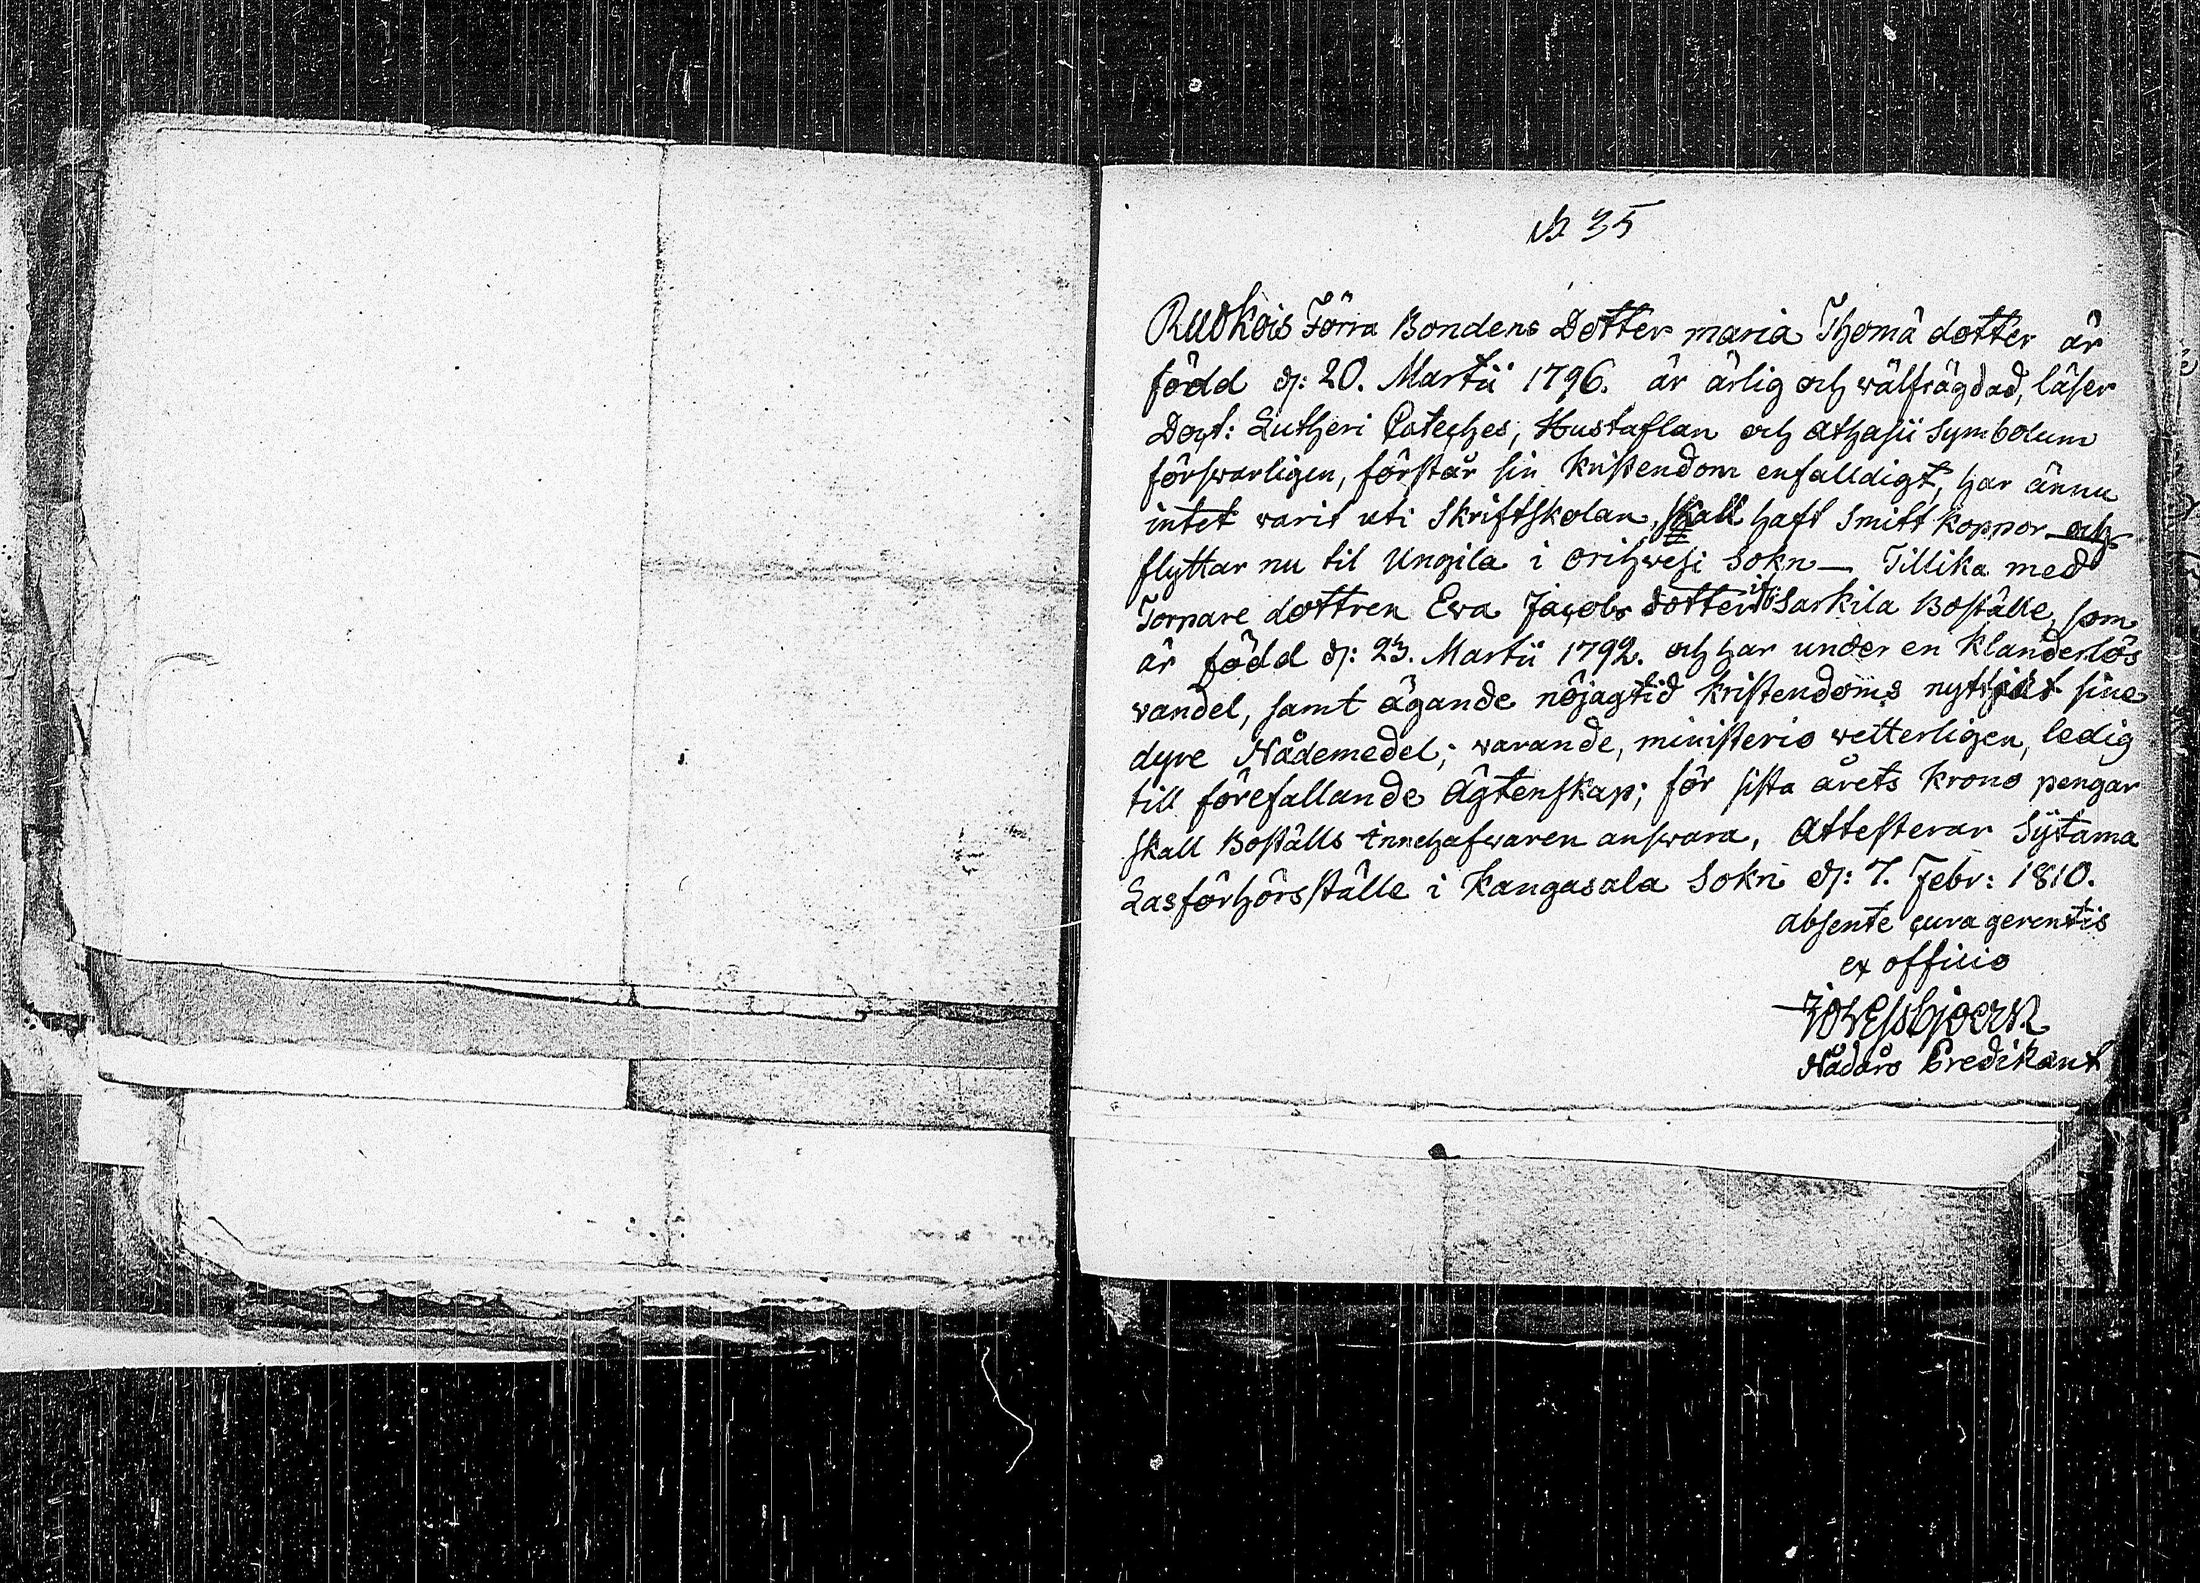 N 35
Ruokois Förra Bondens Dotter maria Thomä dotter är
född d: 20. Martii 1796. är ärlig och wälfrägdad, läser
Doct: Lutheri Cateches, Hustaflan och Athasii Symbolum
förswarligen, förstår sin kristendom enfalldigt, har ännu
intet warit uti Skriftskolan, skall haft Smitt koppor och
flyttar nu til Ungila i orihwesi Sokn — Tillika med
Torpare dottren Ewa Jacobs dotter ifr Sarkila Boställe, som
är född d: 23. Martii 1792. och har under en klanderlös
vandel, samt ägande nöjagtid kristendoms nyttjat sine
dyre Nådemedel; warande, ministerio vetterligen, ledig
till förefallande Ägtenskap; för sista årets krono pengar
skall Boställs innehafwaren answara, Attesterar Sijtama
Läsförhörsställe i Kangasala Sokn d: 7. Febr: 1810.
absente cura gerentis
ex officio
Nådårs Predikant